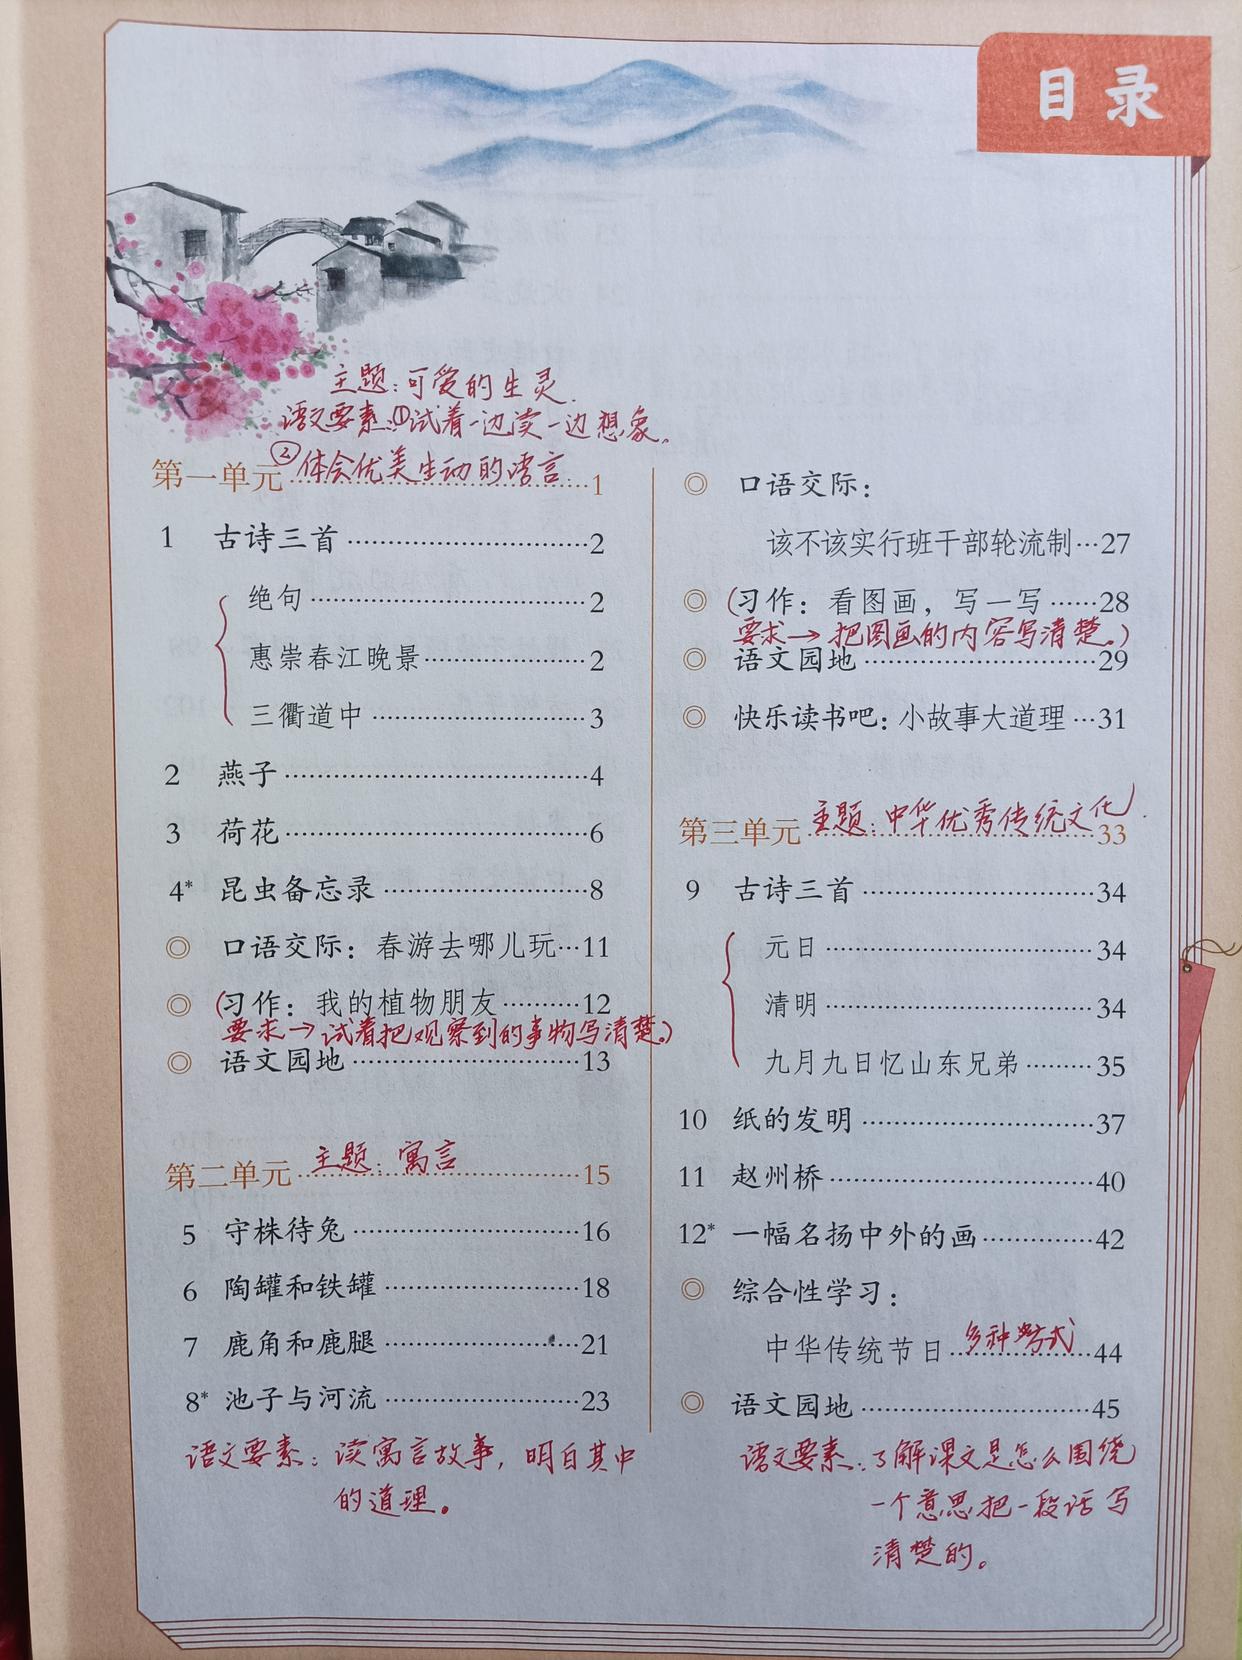 目录
主题：可爱的生灵.
语文要素：①试着一边读一边想象。
②体会优美生动的语言.
第一单元……1
1 古诗三首……2
绝句……2
惠崇春江晚景……2
三衢道中……3
2 燕子……4
3 荷花……6
4* 昆虫备忘录……8
◎ 口语交际：春游去哪儿玩…11
◎ (习作：我的植物朋友……12
要求→试着把观察到的事物写清楚。)
◎ 语文园地……13
第二单元……15
主题：寓言
5 守株待兔……16
6 陶罐和铁罐……18
7 鹿角和鹿腿……21
8* 池子与河流……23
语文要素：读寓言故事，明白其中
的道理。
◎ 口语交际：
该不该实行班干部轮流制…27
◎ (习作：看图画，写一写……28
要求→把图画的内容写清楚。)
◎ 语文园地……29
◎ 快乐读书吧：小故事大道理…31
第三单元……33
主题：中华优秀传统文化
9 古诗三首……34
元日……34
清明……34
九月九日忆山东兄弟……35
10 纸的发明……37
11 赵州桥……40
12* 一幅名扬中外的画……42
◎ 综合性学习：
中华传统节日……44
多种方式
◎ 语文园地……45
语文要素：了解课文是怎么围绕
一个意思把一段话写
清楚的。